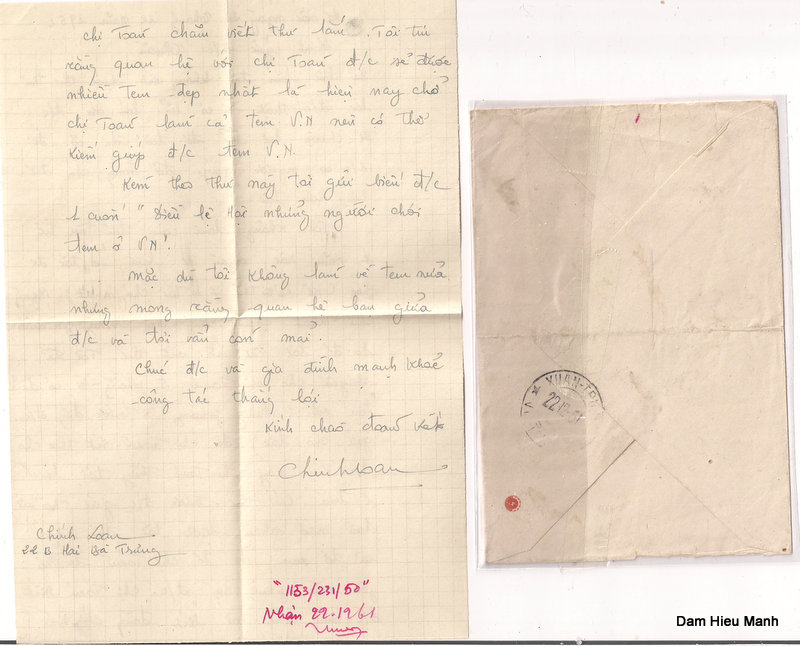 chị Toan chăm viết thư lắm. Tôi tin
rằng quan hệ với chị Toan đ/c sẽ được
nhiều tem đẹp nhất là hiện nay chỗ
chị Toan làm cả tem V.N nên có thể
kiếm giúp đ/c tem V.N.
Kèm theo thư này tôi gửi biếu đ/c
1 cuốn "Điều lệ Hội những người chơi
tem ở V.N".
Mặc dù tôi không làm về tem nữa
nhưng mong rằng quan hệ bạn giữa
đ/c và tôi vẫn còn mãi.
Chúc đ/c và gia đình mạnh khoẻ
công tác thắng lợi
Kính chào đoàn kết
Chinhloan
Chính Loan
22 B Hai Bà Trưng
"1153/231/50"
Nhận 22-1961
XUAN-
22
Dam Hieu Manh